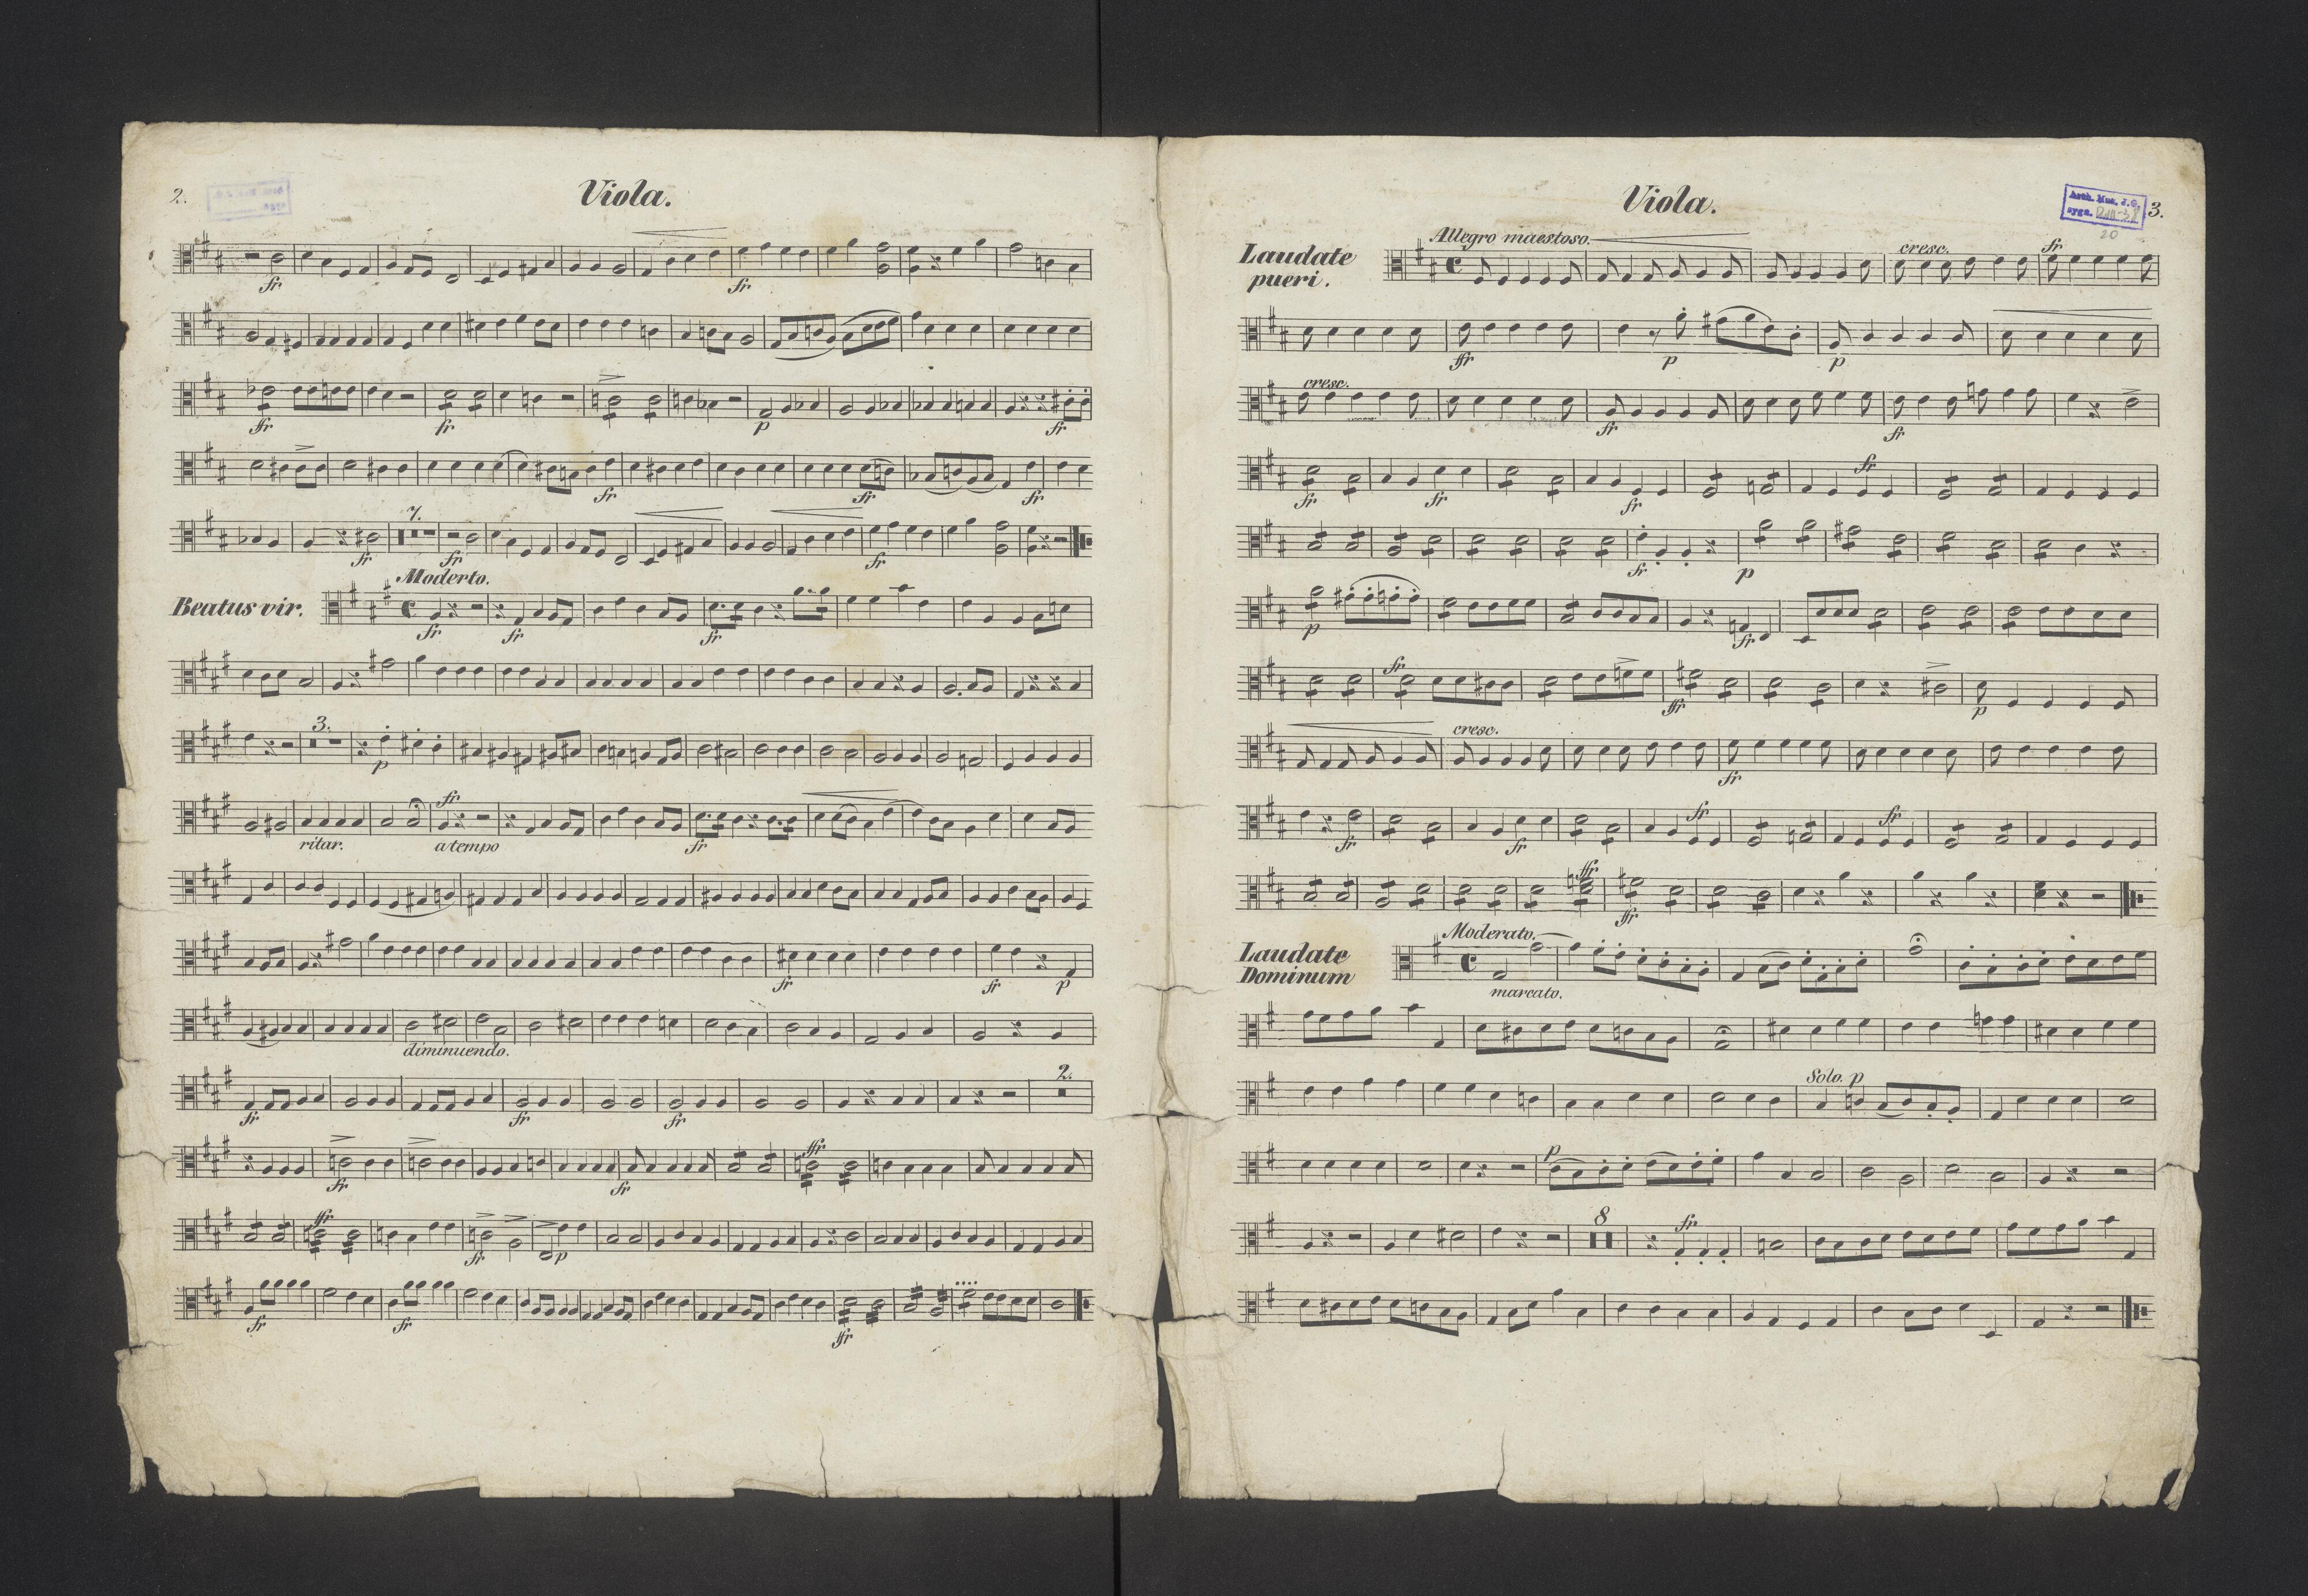 2.
Viola.
fr
fr
ffr
fr
p
fr
fr
fr
fr
7.
fr
fr
fr
Moderto.
Beatus vir.
fr
fr
fr
3.
p
fr
ritar.
a tempo
fr
fr
fr
p
diminuendo.
2.
fr
fr
fr
ffr
fr
fr
ffr
fr
p
fr
fr
ffr
Viola.
Arch. Muz. J.G.
sygn.
20
3.
Laudate
pueri.
Allegro maestoso.
cresc.
fr
ffr
p
p
cresc.
fr
fr
fr
fr
fr
fr
fr
p
p
fr
fr
ffr
p
cresc.
fr
fr
fr
fr
fr
ffr
ffr
Laudate
Dominum
Moderato.
marcato.
Solo. p
p
8
fr